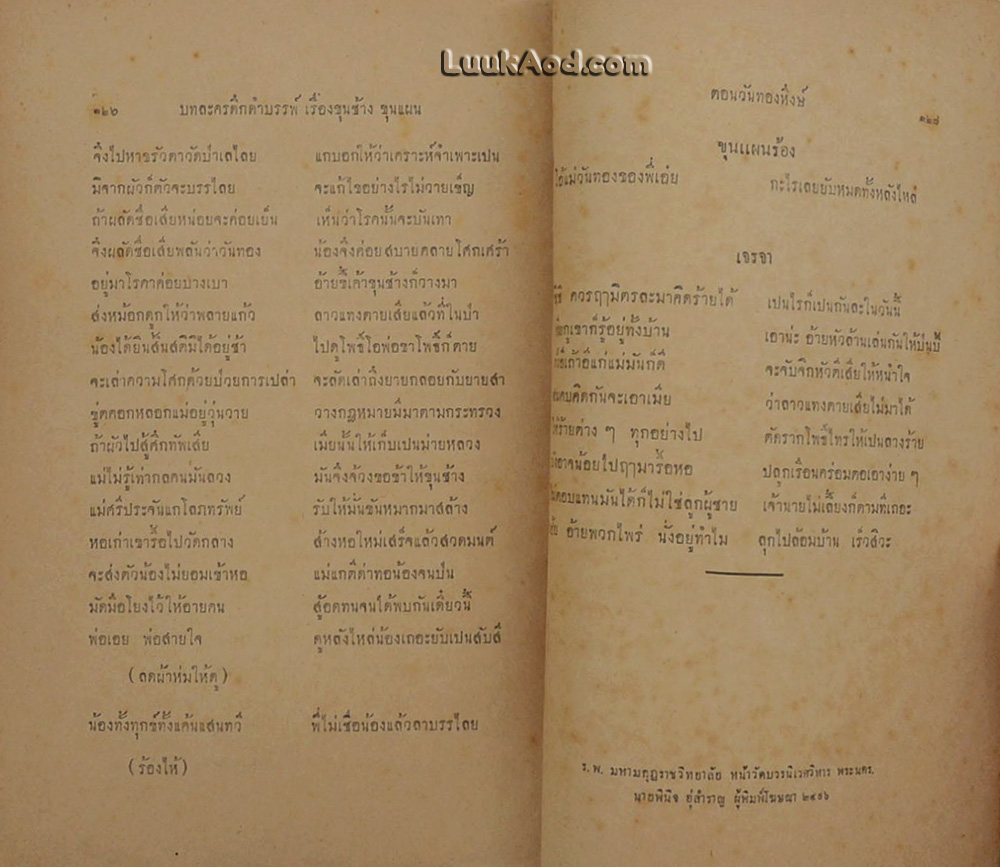 LuukAod.com
๑๒๖ บทละครดึกดำบรรพ์ เรื่องขุนช้าง ขุนแผน
จึงไปหาขรัวตาวัดป่าเลไลย แกบอกให้ว่าเคราะห์จำเพาะเปน
มิจากผัวก็ตัวจะบรรไลย จะแก้ไขอย่างไรไม่วายเข็ญ
ถ้าผลัดชื่อเสียหน่อยจะค่อยเย็น เห็นว่าโรคนั้นจะบันเทา
จึงผลัดชื่อเสียพลันว่าวันทอง น้องจึงค่อยสบายคลายโศกเศร้า
อยู่มาโรคาค่อยบางเบา อ้ายขี้เค้าขุนช้างก็วางมา
ส่งหม้อกดูกให้ว่าพลายแก้ว ลาวแทงตายเสียแล้วที่ในป่า
น้องได้ยินสิ้นสติมิได้อยู่ช้า ไปดูโพธิ์โอพ่อขาโพธิ์ก็ตาย
จะเล่าความโศกด้วยป่วยการเปล่า จะลัดเล่าถึงยายกลอยกับยายสา
ขู่ตคอกหลอกแม่อยู่วุ่นวาย วางกฎหมายมีมาตามกระทรวง
ถ้าผัวไปสู้ศึกทัพเสีย เมียนั้นให้เก็บเปนม่ายหลวง
แม่ไม่รู้เท่ากลคนมันลวง มันจึงจ้วงขอข้าให้ขุนช้าง
แม่ศรีประจันแกโลภทรัพย์ รับให้มันขันหมากมาสล้าง
หอเก่าเขารื้อไปวัดกลาง ล้างหอใหม่เสร็จแล้วสวดมนต์
จะส่งตัวน้องไม่ยอมเข้าหอ แม่แกตีด่าทอน้องจนป่น
มัดมือโยงไว้ให้อายคน สู้อดทนจนได้พบกันเดี๋ยวนี้
พ่อเอย พ่อสายใจ ดูหลังไหล่น้องเถอะยับเปนสับสี
(ลดผ้าห่มให้ดู)
น้องทั้งทุกข์ทั้งแค้นแสนทวี พี่ไม่เชื่อน้องแล้วลาบรรไลย
(ร้องไห้)
ตอนวันทองหึงษ์
๑๒๗
ขุนแผนร้อง
โอ้แม่วันทองของพี่เอ๋ย กะไรเลยยับหมดทั้งหลังไหล่
เจรจา
ควรฤๅมิตรละมาคิดร้ายได้ เปนไรก็เปนกันละในวันนี้
เขาก็รู้อยู่ทั้งบ้าน เอาน่ะ อ้ายหัวล้านเล่นกันให้ป่นปี้
แก่แม่มันก็ดี จะจับจิกหัวตีเสียให้หนำใจ
คิดกันจะเอาเมีย ว่าลาวแทงตายเสียไม่มาได้
ร้ายต่าง ๆ ทุกอย่างไป ตัดรากโพธิ์ไทรให้เปนลางร้าย
น้อยไปฤๅมารื้อหอ ปลูกเรือนคร่อมตอเอาง่าย ๆ
ตอบแทนมันได้ก็ไม่ใช่ลูกผู้ชาย เจ้านายไม่เลี้ยงก็ตามทีเถอะ
อ้ายพวกไพร่ นั่งอยู่ทำไม ลุกไปล้อมบ้าน เร็วสิวะ
ร.พ. มหามกุฏราชวิทยาลัย หน้าวัดบวรนิเวศวิหาร พระนคร.
นายพินิจ อู่สำราญ ผู้พิมพ์โฆษณา ๒๔๙๖